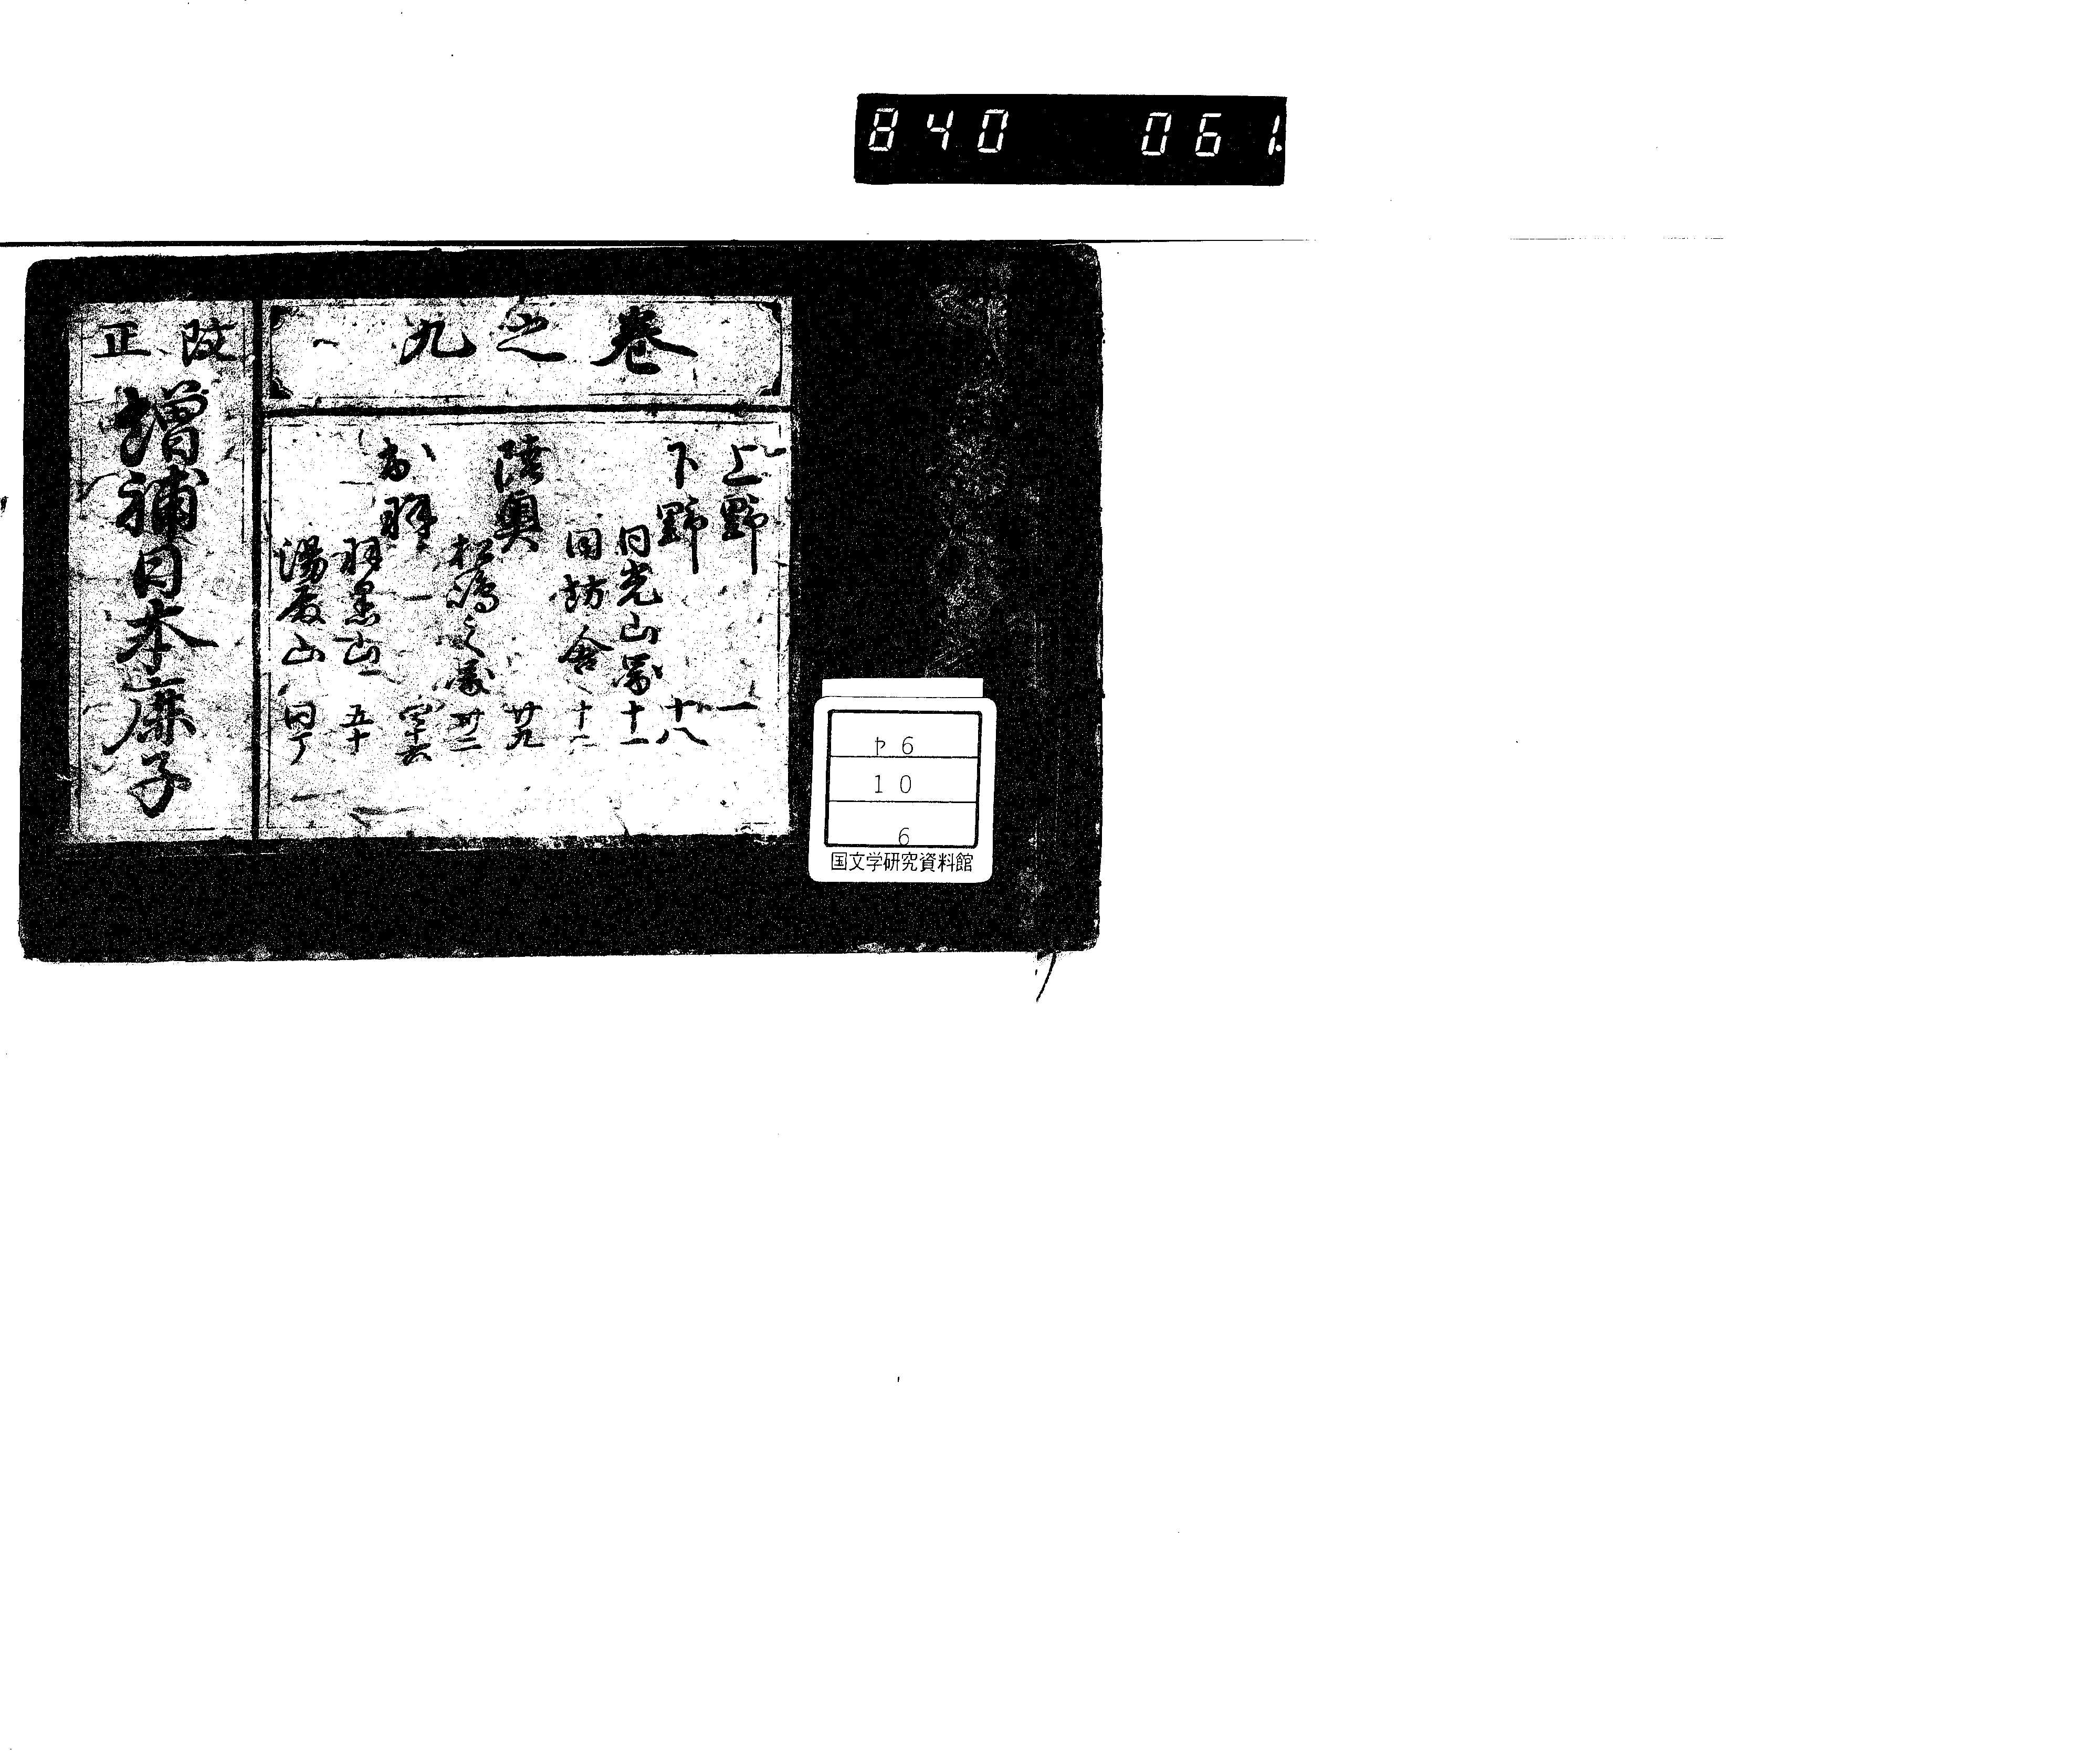 840 061.
巻之九
上野 一
下野 十八
日光山図 十一
同坊舎 十二
陸奥 廿九
松嶋之図 卅二
出羽
羽黒山 五十
湯殿山 同丁
改正
増補日本鹿子
ヤ6
10
6
国文学研究資料館